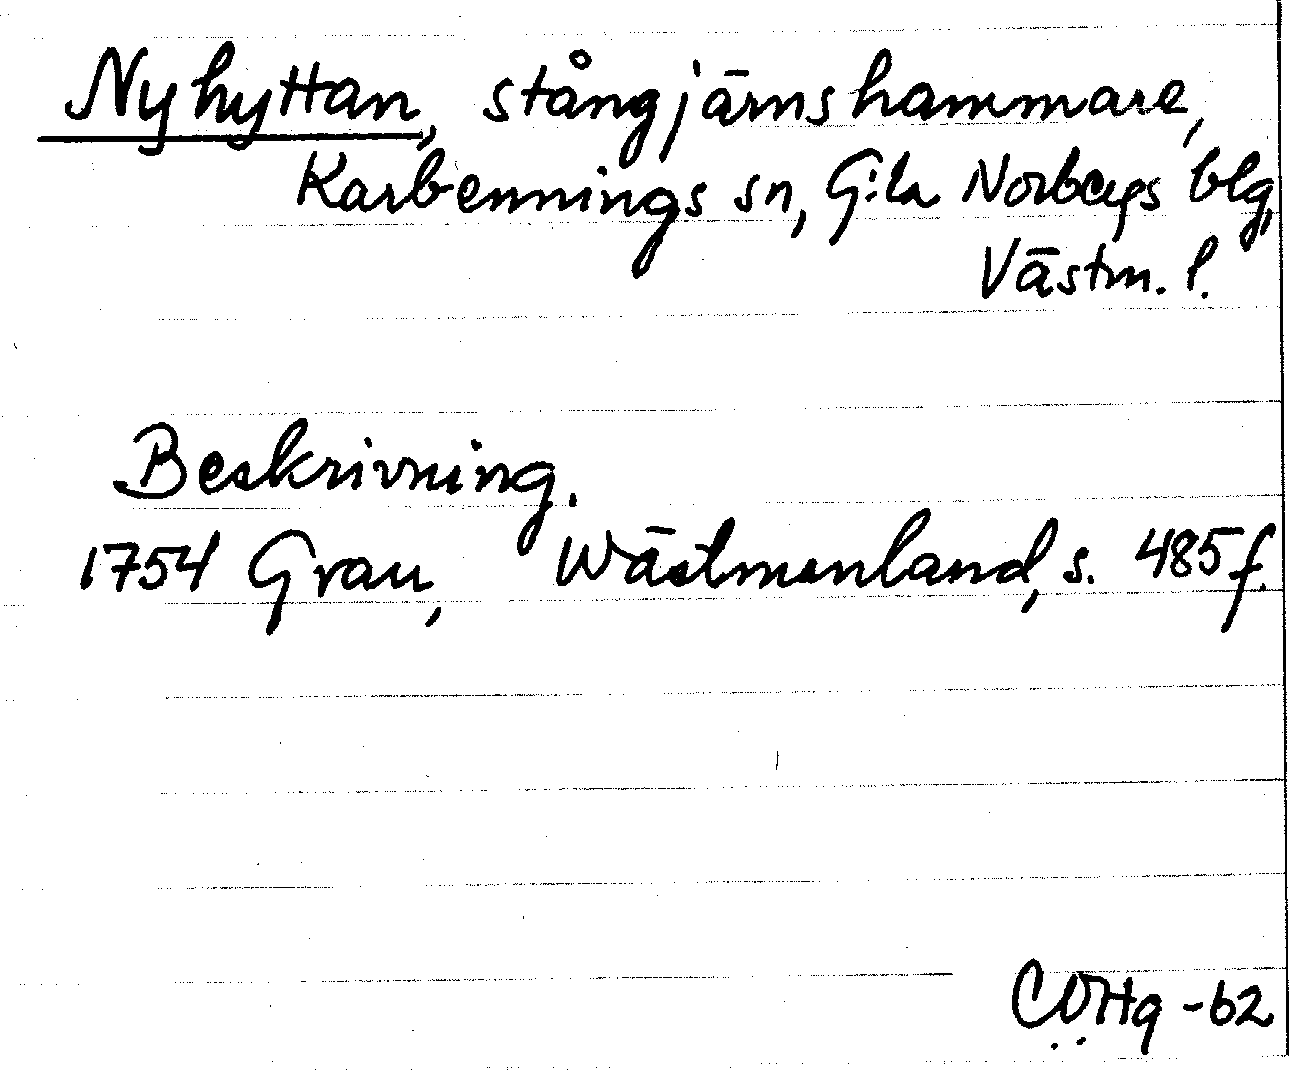 Nyhyttan, stångjärnshammare,
Karbennings sn, G:la Norbergs blg,
Västm. l.
Beskrivning.
1754 Grau, Wästmanland, s. 485 f.
-62